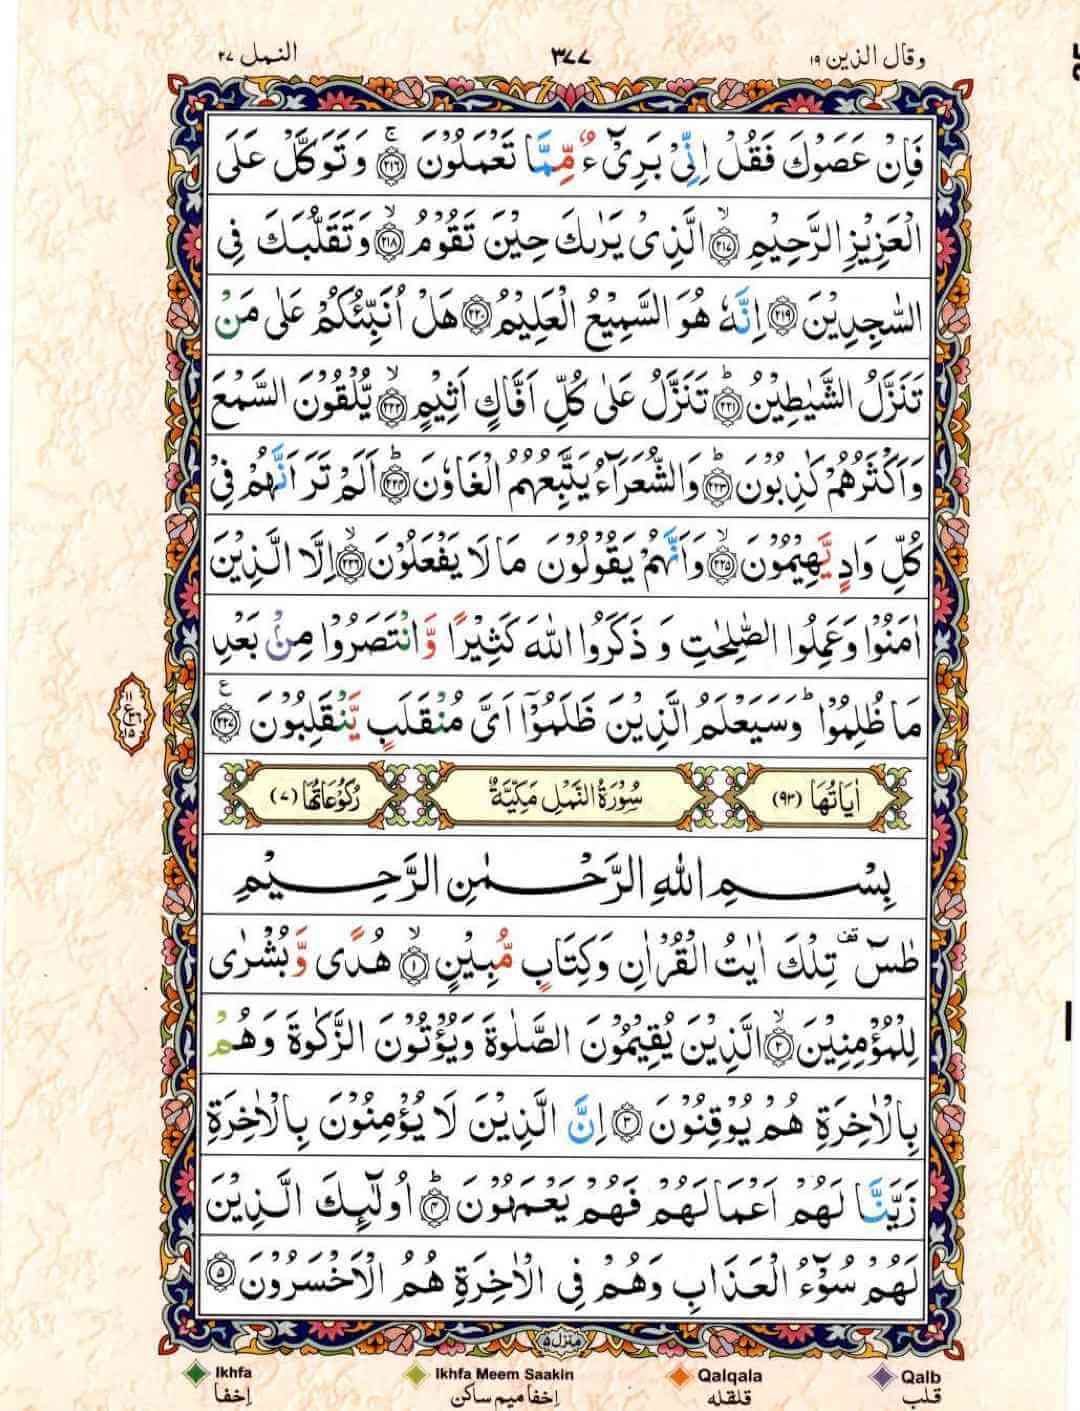 وقال الذين ١٩
٣٧٧
النمل ٢٧
فَاِنْ عَصَوْكَ فَقُلْ اِنِّىْ بَرِىْٓءٌ مِّمَّا تَعْمَلُوْنَ ۚ‏﴿۲۱۶﴾ وَتَوَكَّلْ عَلَى
الْعَزِيْزِ الرَّحِيْمِۙ‏﴿۲۱۷﴾ الَّذِىْ يَرٰٮكَ حِيْنَ تَقُوْمُۙ‏﴿۲۱۸﴾ وَتَقَلُّبَكَ فِى
السّٰجِدِيْنَ‏﴿۲۱۹﴾ اِنَّهٗ هُوَ السَّمِيْعُ الْعَلِيْمُ‏﴿۲۲۰﴾ هَلْ اُنَبِّئُكُمْ عَلٰى مَنْ
تَنَزَّلُ الشَّيٰطِيْنُؕ‏﴿۲۲۱﴾ تَنَزَّلُ عَلٰى كُلِّ اَفَّاكٍ اَثِيْمٍۙ‏﴿۲۲۲﴾ يُّلْقُوْنَ السَّمْعَ
وَاَكْثَرُهُمْ كٰذِبُوْنَؕ‏﴿۲۲۳﴾ وَالشُّعَرَآءُ يَتَّبِعُهُمُ الْغَاوٗنَؕ‏﴿۲۲۴﴾ اَلَمْ تَرَ اَنَّهُمْ فِىْ
كُلِّ وَادٍ يَّهِيْمُوْنَۙ‏﴿۲۲۵﴾ وَاَنَّهُمْ يَقُوْلُوْنَ مَا لَا يَفْعَلُوْنَۙ‏﴿۲۲۶﴾ اِلَّا الَّذِيْنَ
اٰمَنُوْا وَعَمِلُوا الصّٰلِحٰتِ وَ ذَكَرُوا اللّٰهَ كَثِيْرًا وَّانْتَصَرُوْا مِنْۢ بَعْدِ
مَا ظُلِمُوْا ؕ وَسَيَعْلَمُ الَّذِيْنَ ظَلَمُوْۤا اَىَّ مُنْقَلَبٍ يَّنْقَلِبُوْنَ‏﴿۲۲۷﴾ ع
اٰيَاتُهَا (٩٣)
سُوْرَةُ النَّمْلِ مَكِّيَّةٌ
رُكُوْعَاتُهَا (٧)
بِسْمِ اللّٰهِ الرَّحْمٰنِ الرَّحِيْمِ
طٰسٓ ࣞ تِلْكَ اٰيٰتُ الْقُرْاٰنِ وَكِتَابٍ مُّبِيْنٍۙ‏﴿۱﴾ هُدًى وَّبُشْرٰى
لِلْمُؤْمِنِيْنَۙ‏﴿۲﴾ الَّذِيْنَ يُقِيْمُوْنَ الصَّلٰوةَ وَيُؤْتُوْنَ الزَّكٰوةَ وَهُمْ
بِالْاٰخِرَةِ هُمْ يُوْقِنُوْنَ‏﴿۳﴾ اِنَّ الَّذِيْنَ لَا يُؤْمِنُوْنَ بِالْاٰخِرَةِ
زَيَّنَّا لَهُمْ اَعْمَالَهُمْ فَهُمْ يَعْمَهُوْنَؕ‏﴿۴﴾ اُولٰٓٮِٕكَ الَّذِيْنَ
لَهُمْ سُوْٓءُ الْعَذَابِ وَهُمْ فِى الْاٰخِرَةِ هُمُ الْاَخْسَرُوْنَ‏﴿۵﴾
منزل ۵
Ikhfa
إخفا
Ikhfa Meem Saakin
إخفا ميم ساكن
Qalqala
قلقله
Qalb
قلب